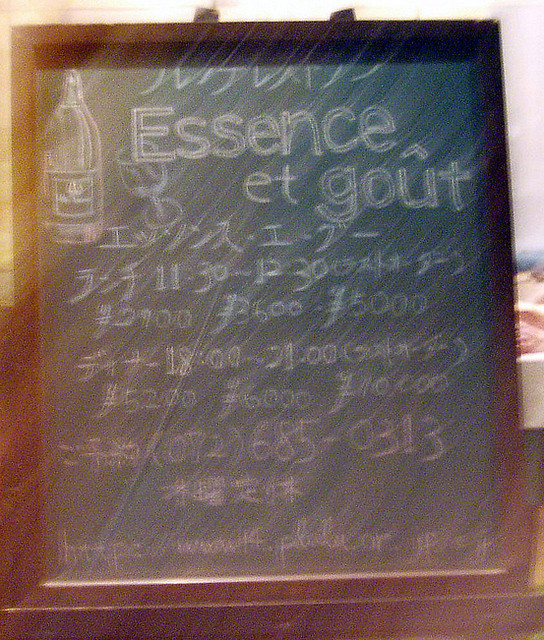 フレンチレストラン
Essence
et goût
エッサンス・エ・グー
ランチ 11:30~12:30(ラストオーダー)
¥2900 ¥3600 ¥5000
ディナー 18:00~21:00(ラストオーダー)
¥5200 ¥6000 ¥10000
ご予約(072)685-0313
木曜定休